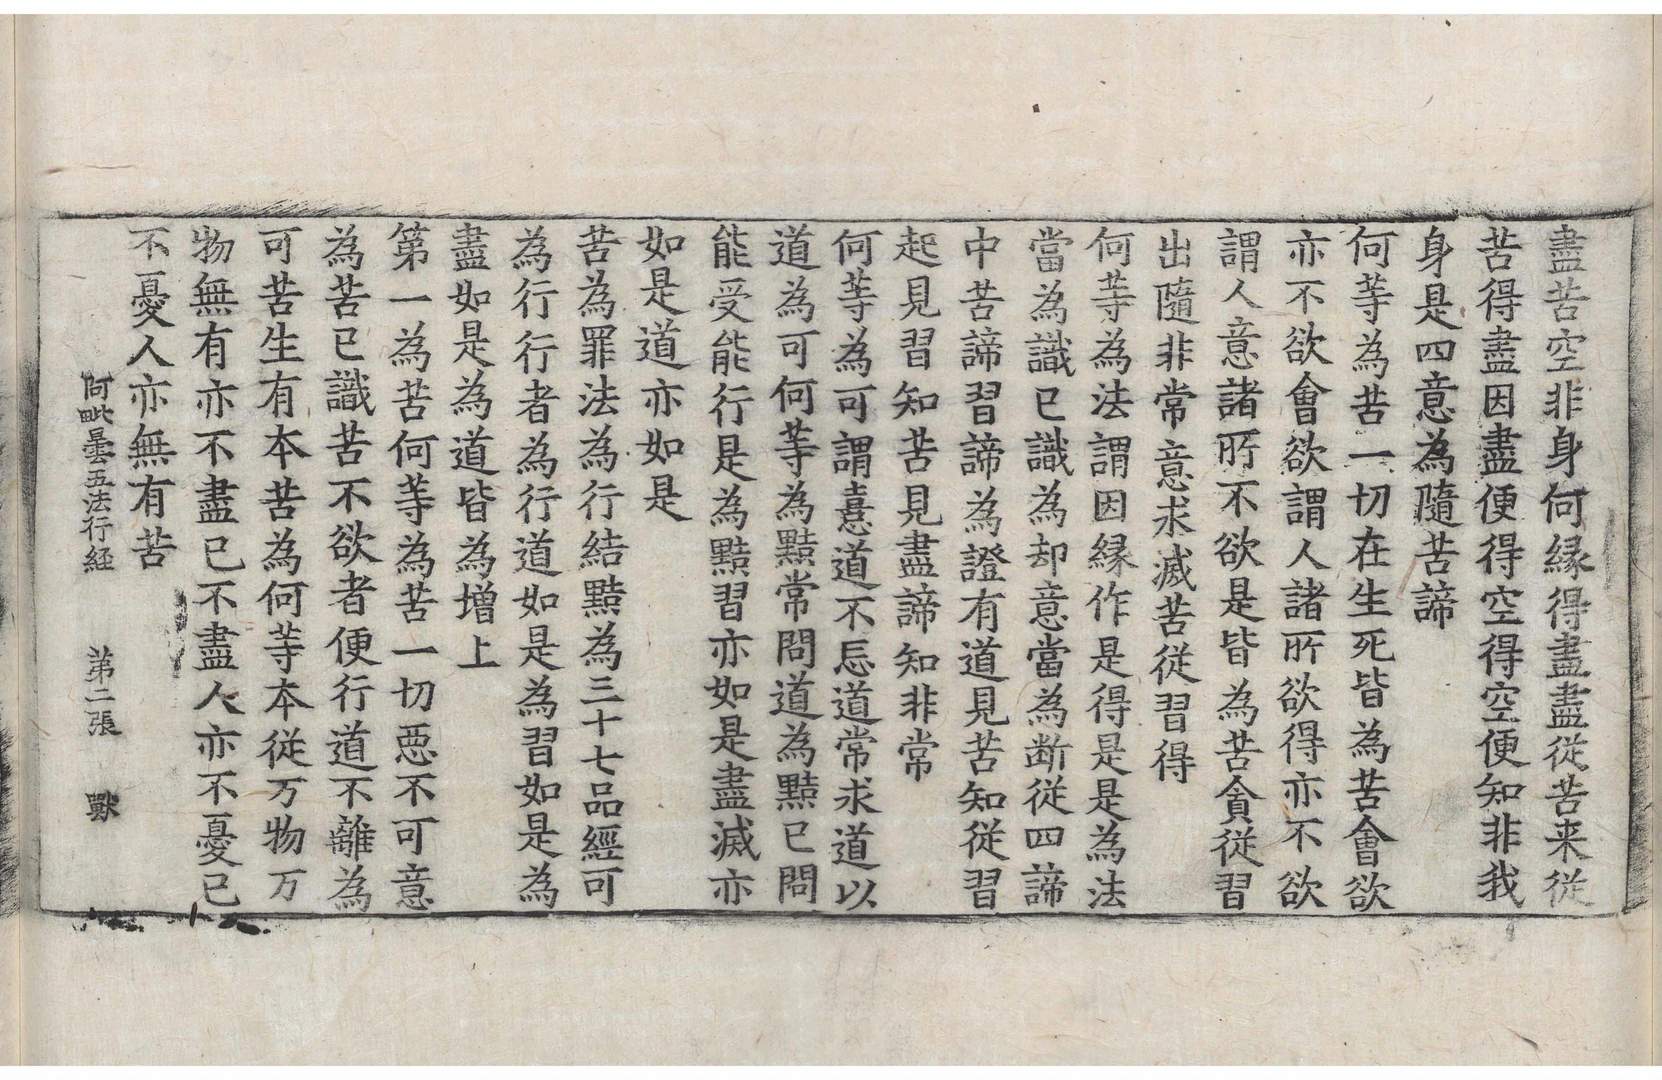 盡苦空非身何縁得盡盡從苦来從
苦得盡因盡便得空得空便知非我
身是四意為隨苦諦
何等為苦一切在生死皆為苦會欲
亦不欲會欲謂人諸所欲得亦不欲
謂人意諸所不欲是皆為苦貪從習
出隨非常意求滅苦從習得
何等為法謂因縁作是得是是為法
當為識已識為却意當為断從四諦
中苦諦習諦為證有道見苦知從習
起見習知苦見盡諦知非常
何等為可謂憙道不忘道常求道以
道為可何等為黠常問道為黠已問
能受能行是為黠習亦如是盡滅亦
如是道亦如是
苦為罪法為行結黠為三十七品經可
為行行者為行道如是為習如是為
盡如是為道皆為增上
第一為苦何等為苦一切惡不可意
為苦已識苦不欲者便行道不離為
可苦生有本苦為何等本從万物万
物無有亦不盡已不盡人亦不憂已
不憂人亦無有苦
阿毗曇五法行経 第二張 獸